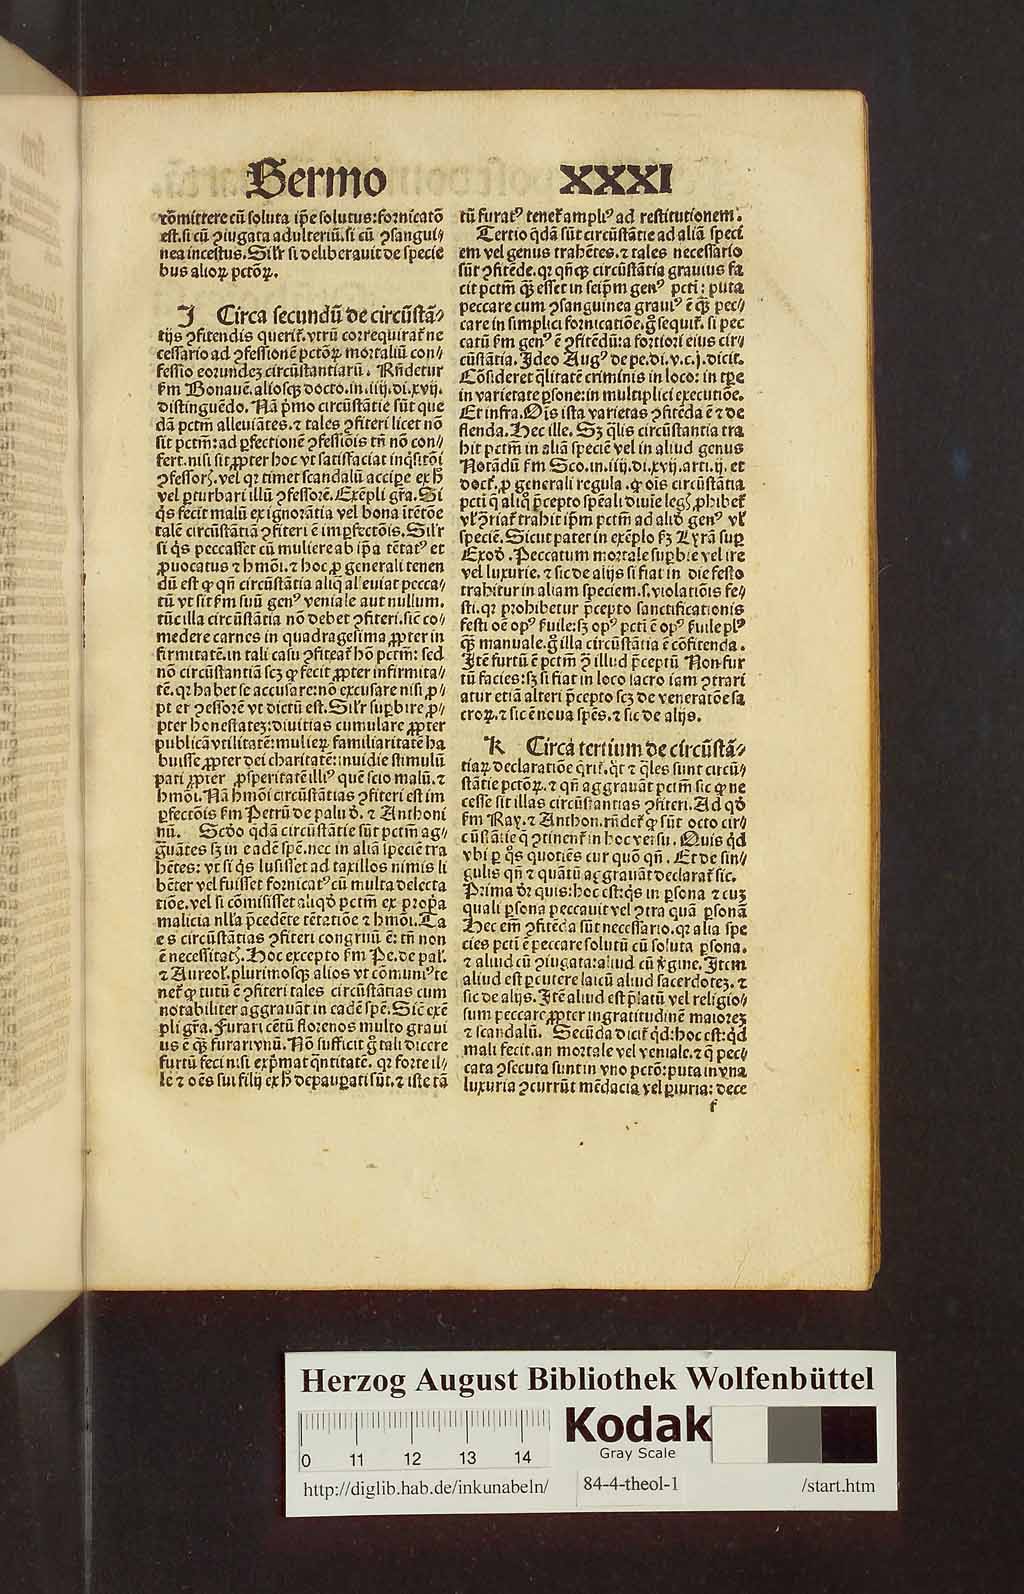 Sermo XXXI
cõmittere cũ soluta ip̃e solutus:fornicatõ
est.si cũ ꝯiugata adulteriũ.si cũ ꝯsangui⸗
nea incestus. Sil'r si deliberauit de specie
bus alioꝝ pctõꝝ.
J Circa secundũ de circũstã⸗
tijs ꝯfitendis querit᷑. vtrũ correquirat᷑ ne
cessario ad ꝯfessionẽ pctõꝝ mortaliũ con⸗
fessio eorundeʒ circũstantiarũ. Rñdetur
ẜm Bonauẽ. aliosqꝫ docto.in.iiij.di.xvij.
distinguẽdo. Nã p̃mo circũstãtie sũt que
dã pctm̃ alleuiãtes.⁊ tales ꝯfiteri licet nõ
sit pctm̃:ad ꝑfectionẽ ꝯfessiõis tñ nõ con⸗
fert.nisi sit ꝓpter hoc vt satisfaciat inq̃sitõi
ꝯfessoꝝ.vel qꝛ timet scandalũ accipe ex ħ
vel ꝑturbari illũ ꝯfessorẽ. Exẽpli gr̃a. Si
q̃s fecit malũ ex ignorãtia vel bona itẽtõe
talẽ circũstãtiã ꝯfiteri ẽ imꝑfectõis. Sil'r
si q̃s peccasset cũ muliere ab ip̃a tẽtatꝰ et
ꝓuocatus ⁊ hmõi.⁊ hoc ꝓ generali tenen
dũ est ꝙ qñ circũstãtia aliq̃ alleuiat pecca⸗
tũ vt sit ẜm suũ genꝰ veniale aut nullum.
tũc illa circũstãtia nõ debet ꝯfiteri.sic co⸗
medere carnes in quadragesima ꝓpter in
firmitatẽ.in tali casu ꝯfiteat᷑ hõ pctm̃: sed
nõ circũstantiã scʒ ꝙ fecit ꝓpter infirmita⸗
tẽ.qꝛ habet se accusare:nõ excusare nisi ꝓ⸗
pter ꝯfessorẽ vt dictũ est. Sil'r suꝑbire ꝓ⸗
pter honestateʒ:diuitias cumulare ꝓpter
publicã vtilitatẽ:mulieꝝ familiaritatẽ ha
buisse ꝓpter dei charitatẽ:inuidie stimulũ
pati ꝓpter ꝓsperitatẽ illiꝰ quẽ scio malũ.⁊
hmõi. Nã hmõi circũstãtias ꝯfiteri est im
ꝑfectõis ẜm Petrũ de palud̾. ⁊ Anthoni
nũ. Scd̾o q̃dã circũstãtie sũt pctm̃ ag⸗
grauãtes sʒ in eadẽ spẽ.nec in aliã speciẽ tra
hẽtes: vt si q̃s lusisset ad taxillos nimis li
bẽter vel fuisset fornicatꝰ cũ multa delecta
tiõe.vel si cõmisisset aliqd̾ pctm̃ ex ꝓpria
malicia nlla p̃cedẽte tẽtatiõe ⁊ hmõi. Ta
les circũstãtias ꝯfiteri congruũ ẽ: tñ non
ẽ necessitatꝭ. Hoc excepto ẜm Pe.de pal.
⁊ Aureol'.plurimosqꝫ alios vt cõmuniꝰ te
net᷑ ꝙ tutũ ẽ ꝯfiteri tales circũstãtias cum
notabiliter aggrauãt in eadẽ spẽ. Sic̃ exẽ
pli gr̃a. Furari cẽtũ florenos multo graui
us ẽ qꝫ furari vnũ. Nõ sufficit gͦ tali dicere
furtũ feci nisi exp̃mat q̃ntitatẽ. qꝛ forte il⸗
le ⁊ oẽs sui filij ex ħ depauꝑati sũt.⁊ iste tã
tũ furatꝰ tenet᷑ ampliꝰ ad restitutionem.
Tertio q̃dã sũt circũstãtie ad aliã speci
em vel genus trahẽtes.⁊ tales necessario
sũt ꝯfitẽde.qꝛ qñqꝫ circũstãtia grauius fa
cit pctm̃ qꝫ esset in seip̃m genꝰ pcti: puta
peccare cum ꝯsanguinea grauiꝰ ẽ qꝫ pec⸗
care in simplici fornicatiõe.gͦ sequit᷑. si pec
catũ ẜm genꝰ ẽ ꝯfitẽdũ:a fortiori eius cir⸗
cũstãtia. Ideo Augꝰ de pe.di.v.c.j.dicit.
Cõsideret q̃litatẽ criminis in loco: in tp̃e
in varietate ꝑsone:in multiplici executiõe.
Et infra. Oĩs ista varietas ꝯfitẽda ẽ ⁊ de
flenda. Hec ille. Sʒ q̃lis circũstantia tra
hit pctm̃ in aliã speciẽ vel in aliud genus
Notãdũ ẜm Sco.in.iiij.di.xvij.arti.ij. et
doct᷑. ꝓ generali regula. ꝙ oĩs circũstãtia
pcti q̃ aliq̃ p̃cepto sp̃eali diuie legꝭ ꝓhibet᷑
vl' ꝯriat᷑ trahit ip̃m pctm̃ ad aliud̾ genꝰ vl'
speciẽ. Sicut patet in exẽplo ẜʒ Lyrã suꝑ
Exod̾. Peccatum mortale suꝑbie vel ire
vel luxurie.⁊ sic de alijs si fiat in die festo
trahitur in aliam speciem.s.violatiõis fe⸗
sti.qꝛ prohibetur p̃cepto sanctificationis
festi oẽ opꝰ ẜuile:sʒ opꝰ pcti ẽ opꝰ ẜuile plꝰ
qꝫ manuale.gͦ illa circũstãtia ẽ cõfitenda.
Itẽ furtũ ẽ pctm̃ ꝯ illud p̃ceptũ Non fur
tũ facies:sʒ si fiat in loco sacro iam ꝯtrari
atur etiã alteri p̃cepto scʒ de veneratõe sa
croꝝ.⁊ sic ẽ noua sp̃es.⁊ sic de alijs.
K Circa tertium de circũstã⸗
tiaꝝ declaratiõe q̃rit᷑.q̃t ⁊ q̃les sunt circũ⸗
stãtie pctõꝝ.⁊ qñ aggrauãt pctm̃ sic ꝙ ne
cesse sit illas circũstantias ꝯfiteri. Ad qd̾
ẜm Ray.⁊ Anthon.rñdet᷑ ꝙ sũt octo cir⸗
cũstãtie q̃ ꝯtinent᷑ in hoc versu. Quis qd̾
vbi ꝑ q̃s quotiẽs cur quõ qñ. Et de sin⸗
gulis qñ ⁊ quãtũ aggrauãt declarat᷑ sic.
Prima dr̃ quis:hoc est:q̃s in ꝑsona ⁊ cuʒ
quali ꝑsona peccauit vel ꝯtra quã ꝑsonã
Hec em̃ ꝯfitẽda sũt necessario.qꝛ alia spe
cies pcti ẽ peccare solutũ cũ soluta ꝑsona.
⁊ aliud cũ ꝯiugata:aliud cũ v̾gine. Item
aliud est ꝑcutere laicũ aliud sacerdoteʒ.⁊
sic de alijs. Itẽ aliud est p̃latũ vel religio⸗
sum peccare ꝓpter ingratitudinẽ maioreʒ
⁊ scandalũ. Secũda dicit᷑ qd̾:hoc est:qd̾
mali fecit.an mortale vel veniale.⁊ q̃ pec⸗
cata ꝯsecuta sunt in vno pctõ:puta in vna
luxuria ꝯcurrũt mẽdacia vel ꝑiuria: dece
f
Herzog August Bibliothek Wolfenbüttel
0 11 12 13 14
Kodak
Gray Scale
http://diglib.hab.de/inkunabeln/ 84-4-theol-1 /start.htm